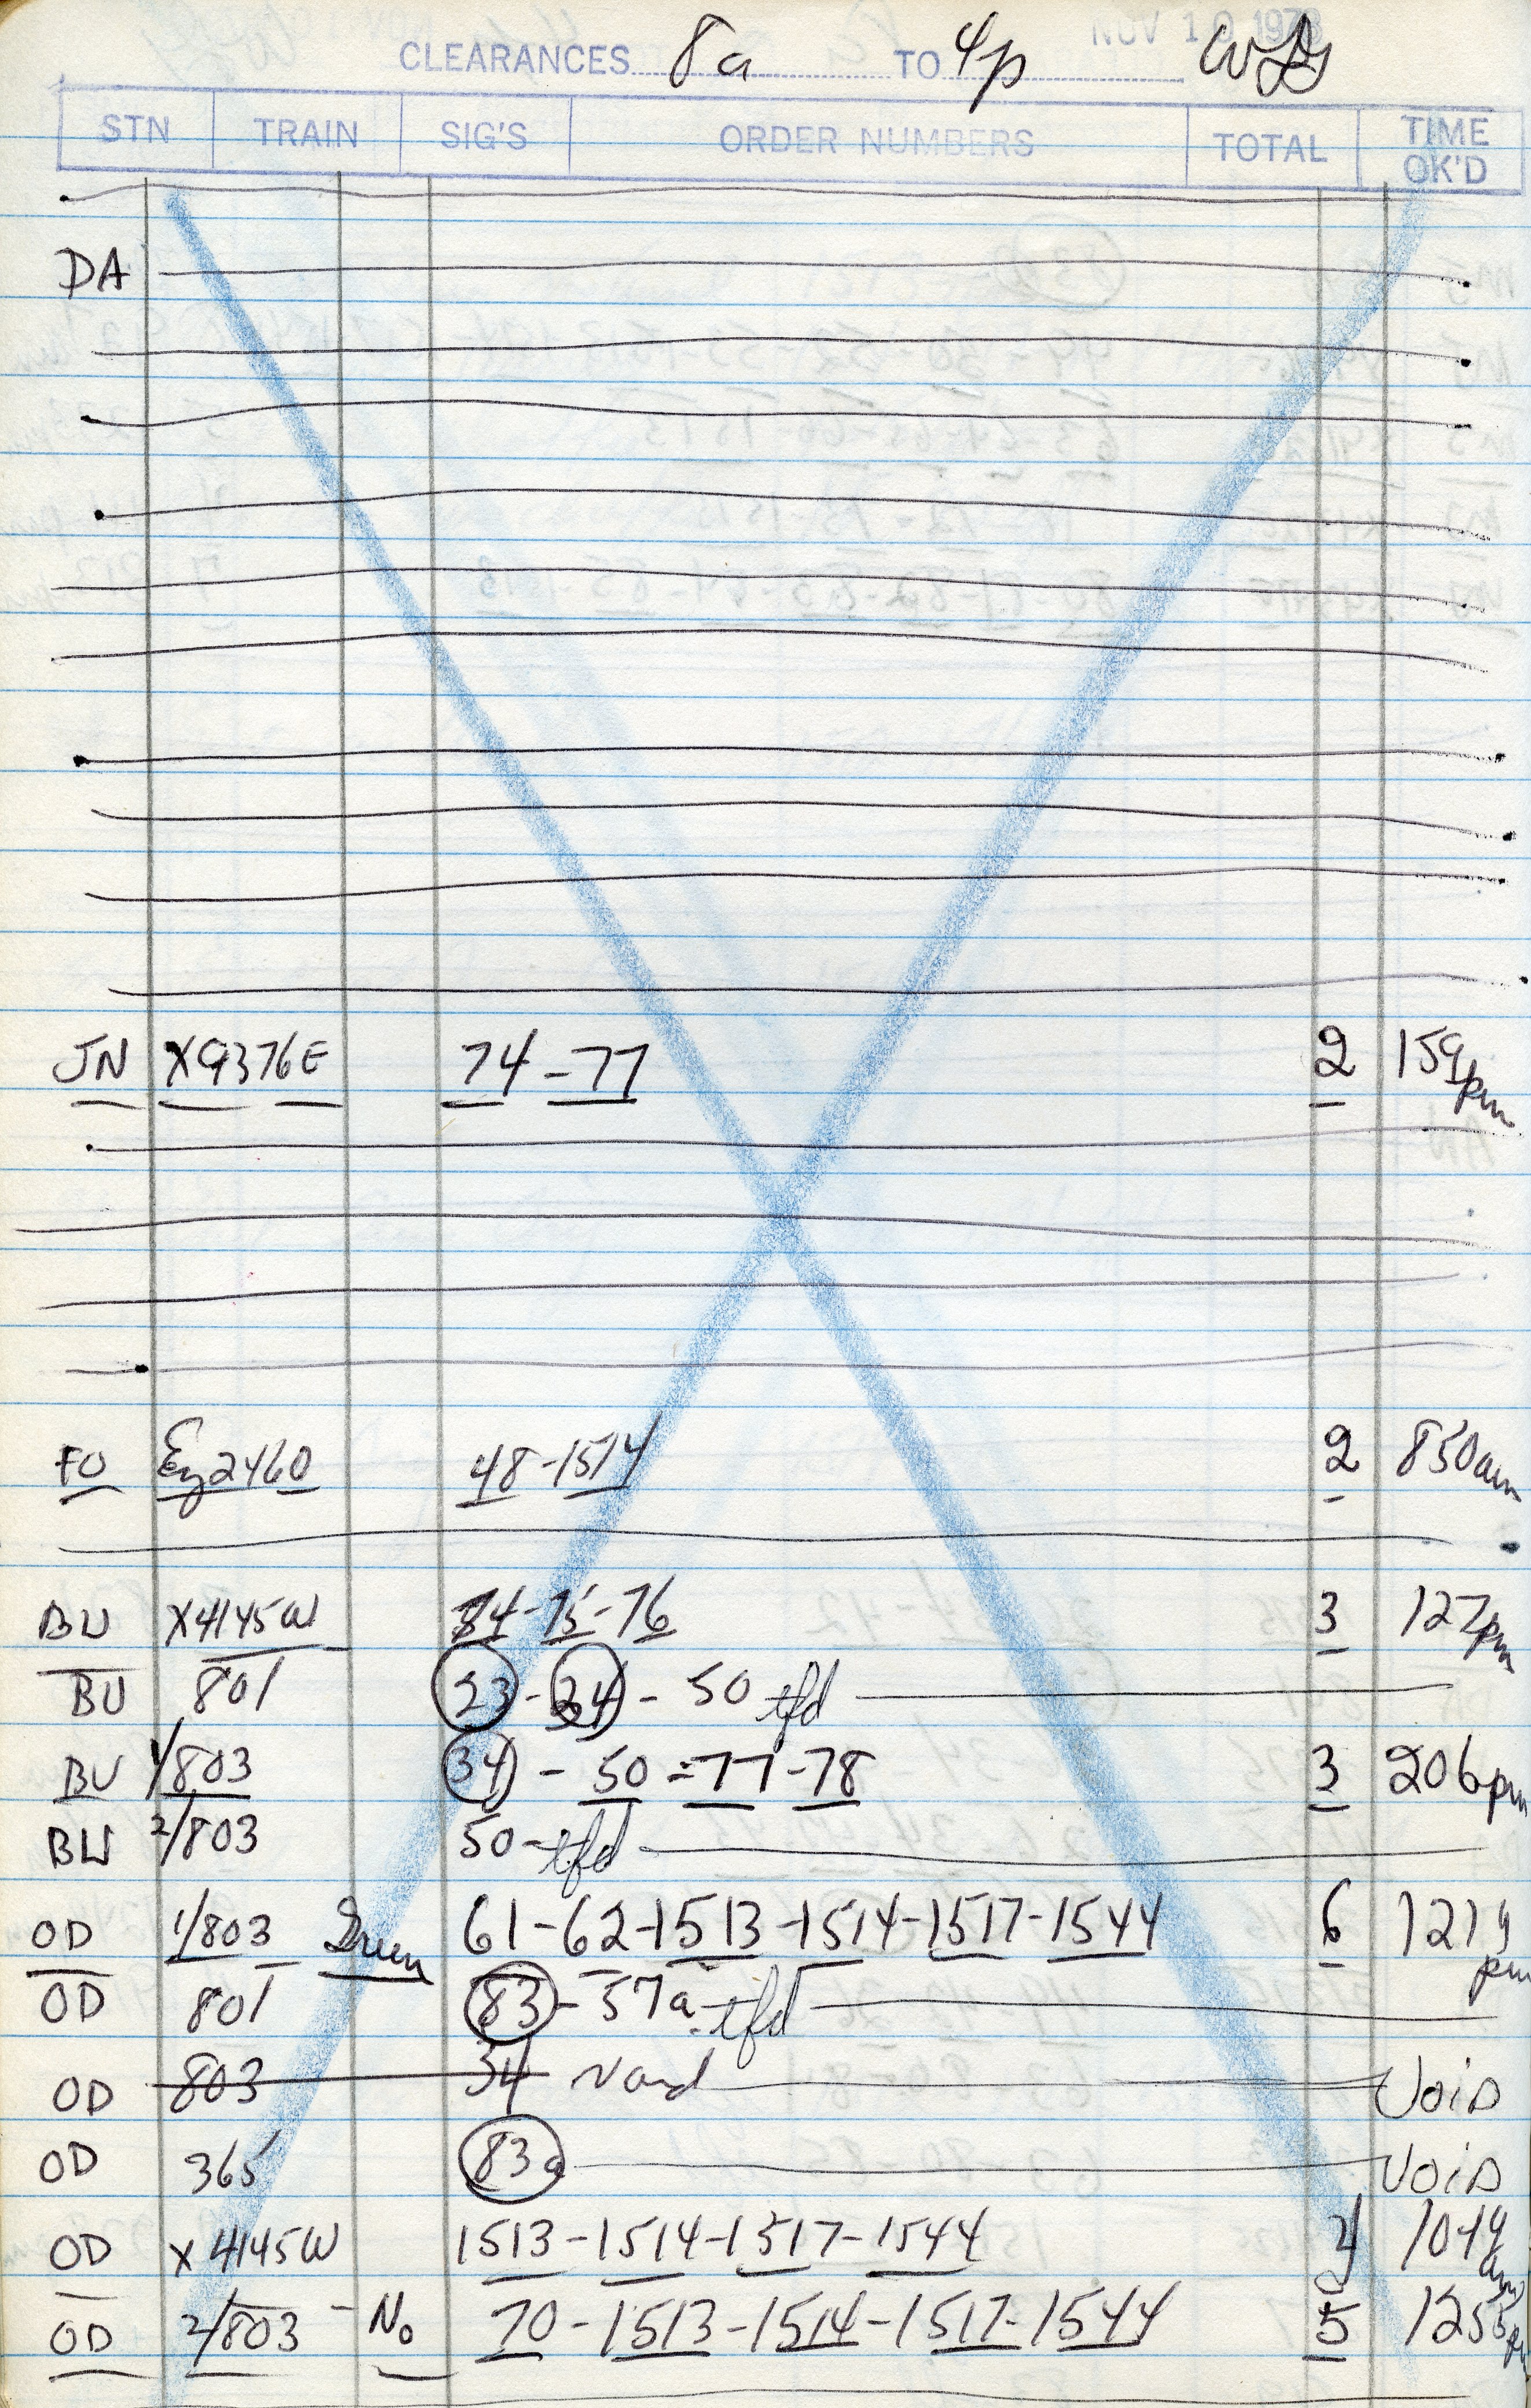 NOV 10 1978
CLEARANCES 8a TO 4p
STN TRAIN SIG'S ORDER NUMBERS TOTAL TIME OK'D
DA
JN X9376E 74-77 2 159pm
FO Eng 2460 48-1514 2 850am
BU X4145W 74-75-76 3 127pm
BU 801 23-24-50 tfd
BU 1/803 34-50-77-78 3 206pm
BU 2/803 50-tfd
OD 1/803 Green 61-62-1513-1514-1517-1544 6 1219pm
OD 801 83-57a-tfd
OD 803 34 Void
OD 365 83a Void
OD X4145W 1513-1514-1517-1544 4 1049am
OD 2/803 - No 70-1513-1514-1517-1544 5 1255pm